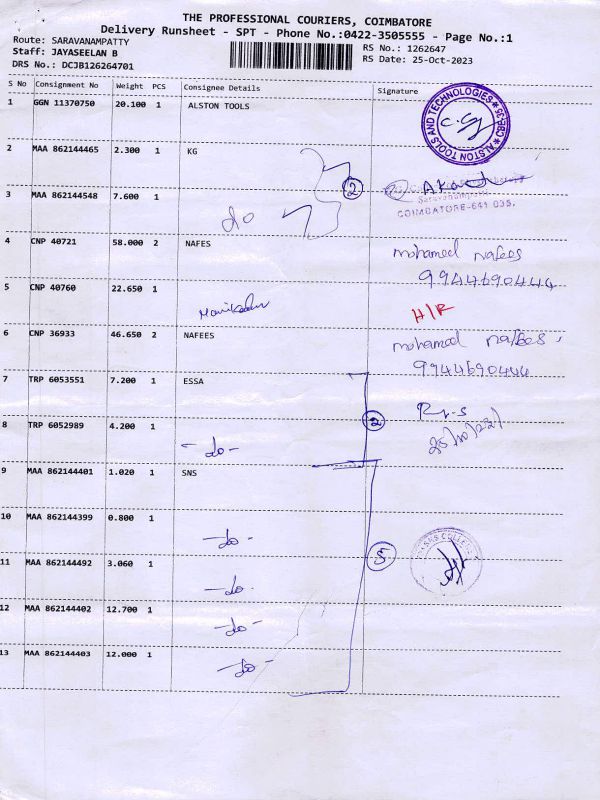 THE PROFESSIONAL COURIERS, COIMBATORE
Delivery Runsheet - SPT - Phone No.:0422-3505555 - Page No.:1
Route: SARAVANAMPATTY
RS No.: 1262647
Staff: JAYASEELAN B
RS Date: 25-Oct-2023
DRS No.: DCJB126264701
S No Consignment No Weight PCS Consignee Details Signature
1 GGN 11370750 20.100 1 ALSTON TOOLS
ALSTON TOOLS AND TECHNOLOGIES * CBE-35 *
2 MAA 862144465 2.300 1 KG
2
3 MAA 862144548 7.600 1
do
Saravanampatti
COIMBATORE-641 035.
4 CNP 40721 58.000 2 NAFES
mohamed nafees
9944690444
5 CNP 40760 22.650 1
H/R
6 CNP 36933 46.650 2 NAFEES
mohamed nafees
9944690444
7 TRP 6053551 7.200 1 ESSA
2
8 TRP 6052989 4.200 1
- do -
25/10/23
9 MAA 862144401 1.020 1 SNS
10 MAA 862144399 0.800 1
- do -
5
11 MAA 862144492 3.060 1
- do -
12 MAA 862144402 12.700 1
- do -
13 MAA 862144403 12.000 1
- do -